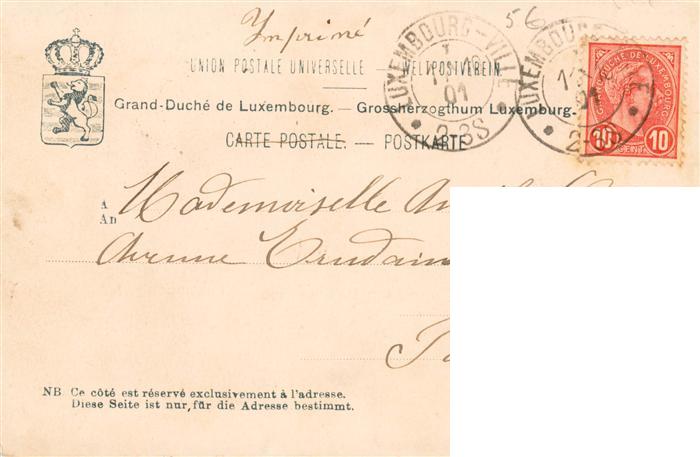 Imprimé
56
UNION POSTALE UNIVERSELLE WELTPOSTVEREIN.
Grand-Duché de Luxembourg. — Grossherzogthum Luxemburg.
CARTE POSTALE. — POSTKARTE
LUXEMBOURG-VILLE
01
2-3S
LUXEMBOURG
GRAND DUCHE DE LUXEMBOURG
10 10
A Mademoiselle
An
Avenue Trudain
NB Ce côté est réservé exclusivement à l'adresse.
Diese Seite ist nur, für die Adresse bestimmt.